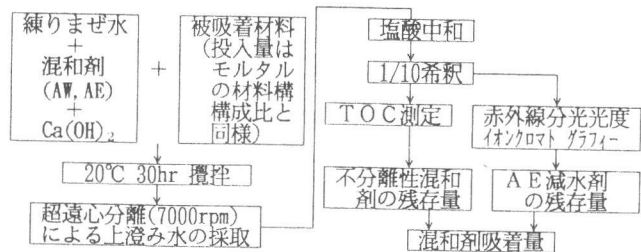 練りまぜ水
+
混和剤
(AW, AE)
+
Ca(OH)₂
+
被吸着材料
(投入量は
モルタル
の材料構
構成比と
同様)
20℃ 30hr 攪拌
超遠心分離(7000rpm)
による上澄み水の採取
塩酸中和
1/10希釈
TOC測定
赤外線分光光度
イオンクロマトグラフィー
不分離性混和
剤の残存量
AE減水剤
の残存量
混和剤吸着量